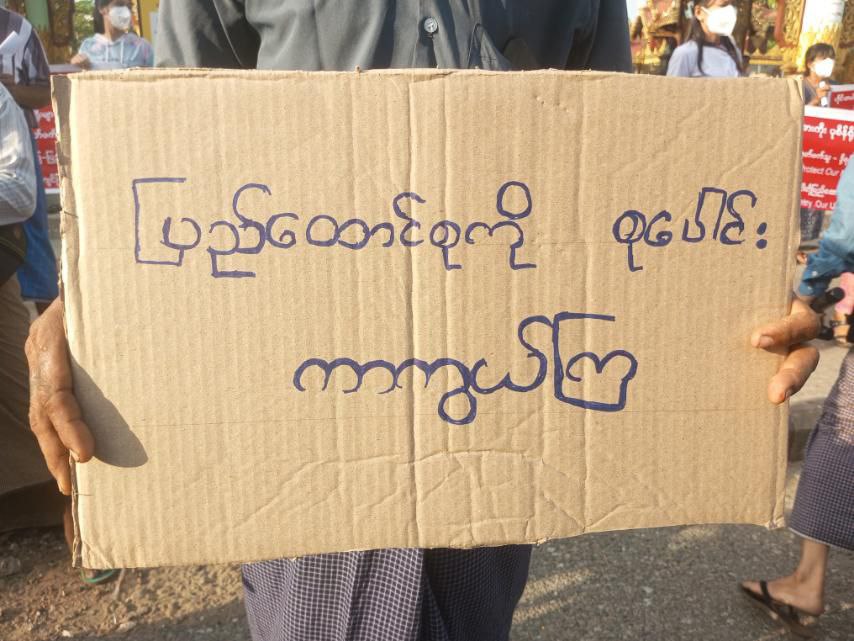 ပြည်ထောင်စုကို စုပေါင်း
ကာကွယ်ကြ
rotect Our